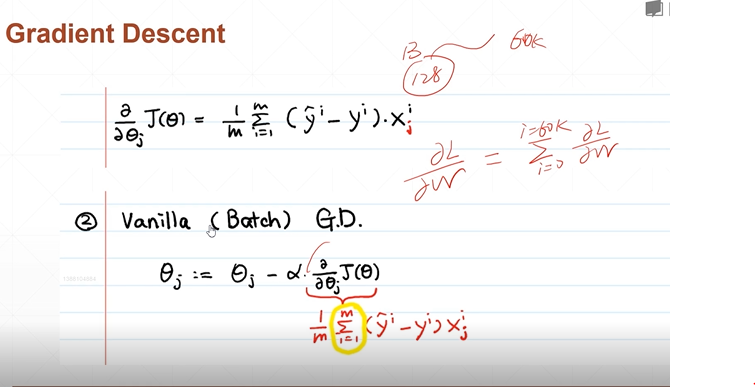 Gradient Descent
B 60K
128
∂/∂θj J(θ) = 1/m Σ_{i=1}^{m} (ŷ^i − y^i)·x_j^i
∂L/∂W = Σ_{i=0}^{i=60K} ∂L/∂W
② Vanilla (Batch) G.D.
θj := θj − α · ∂/∂θj J(θ)
1/m Σ_{i=1}^{m} (ŷ^i − y^i) x_j^i